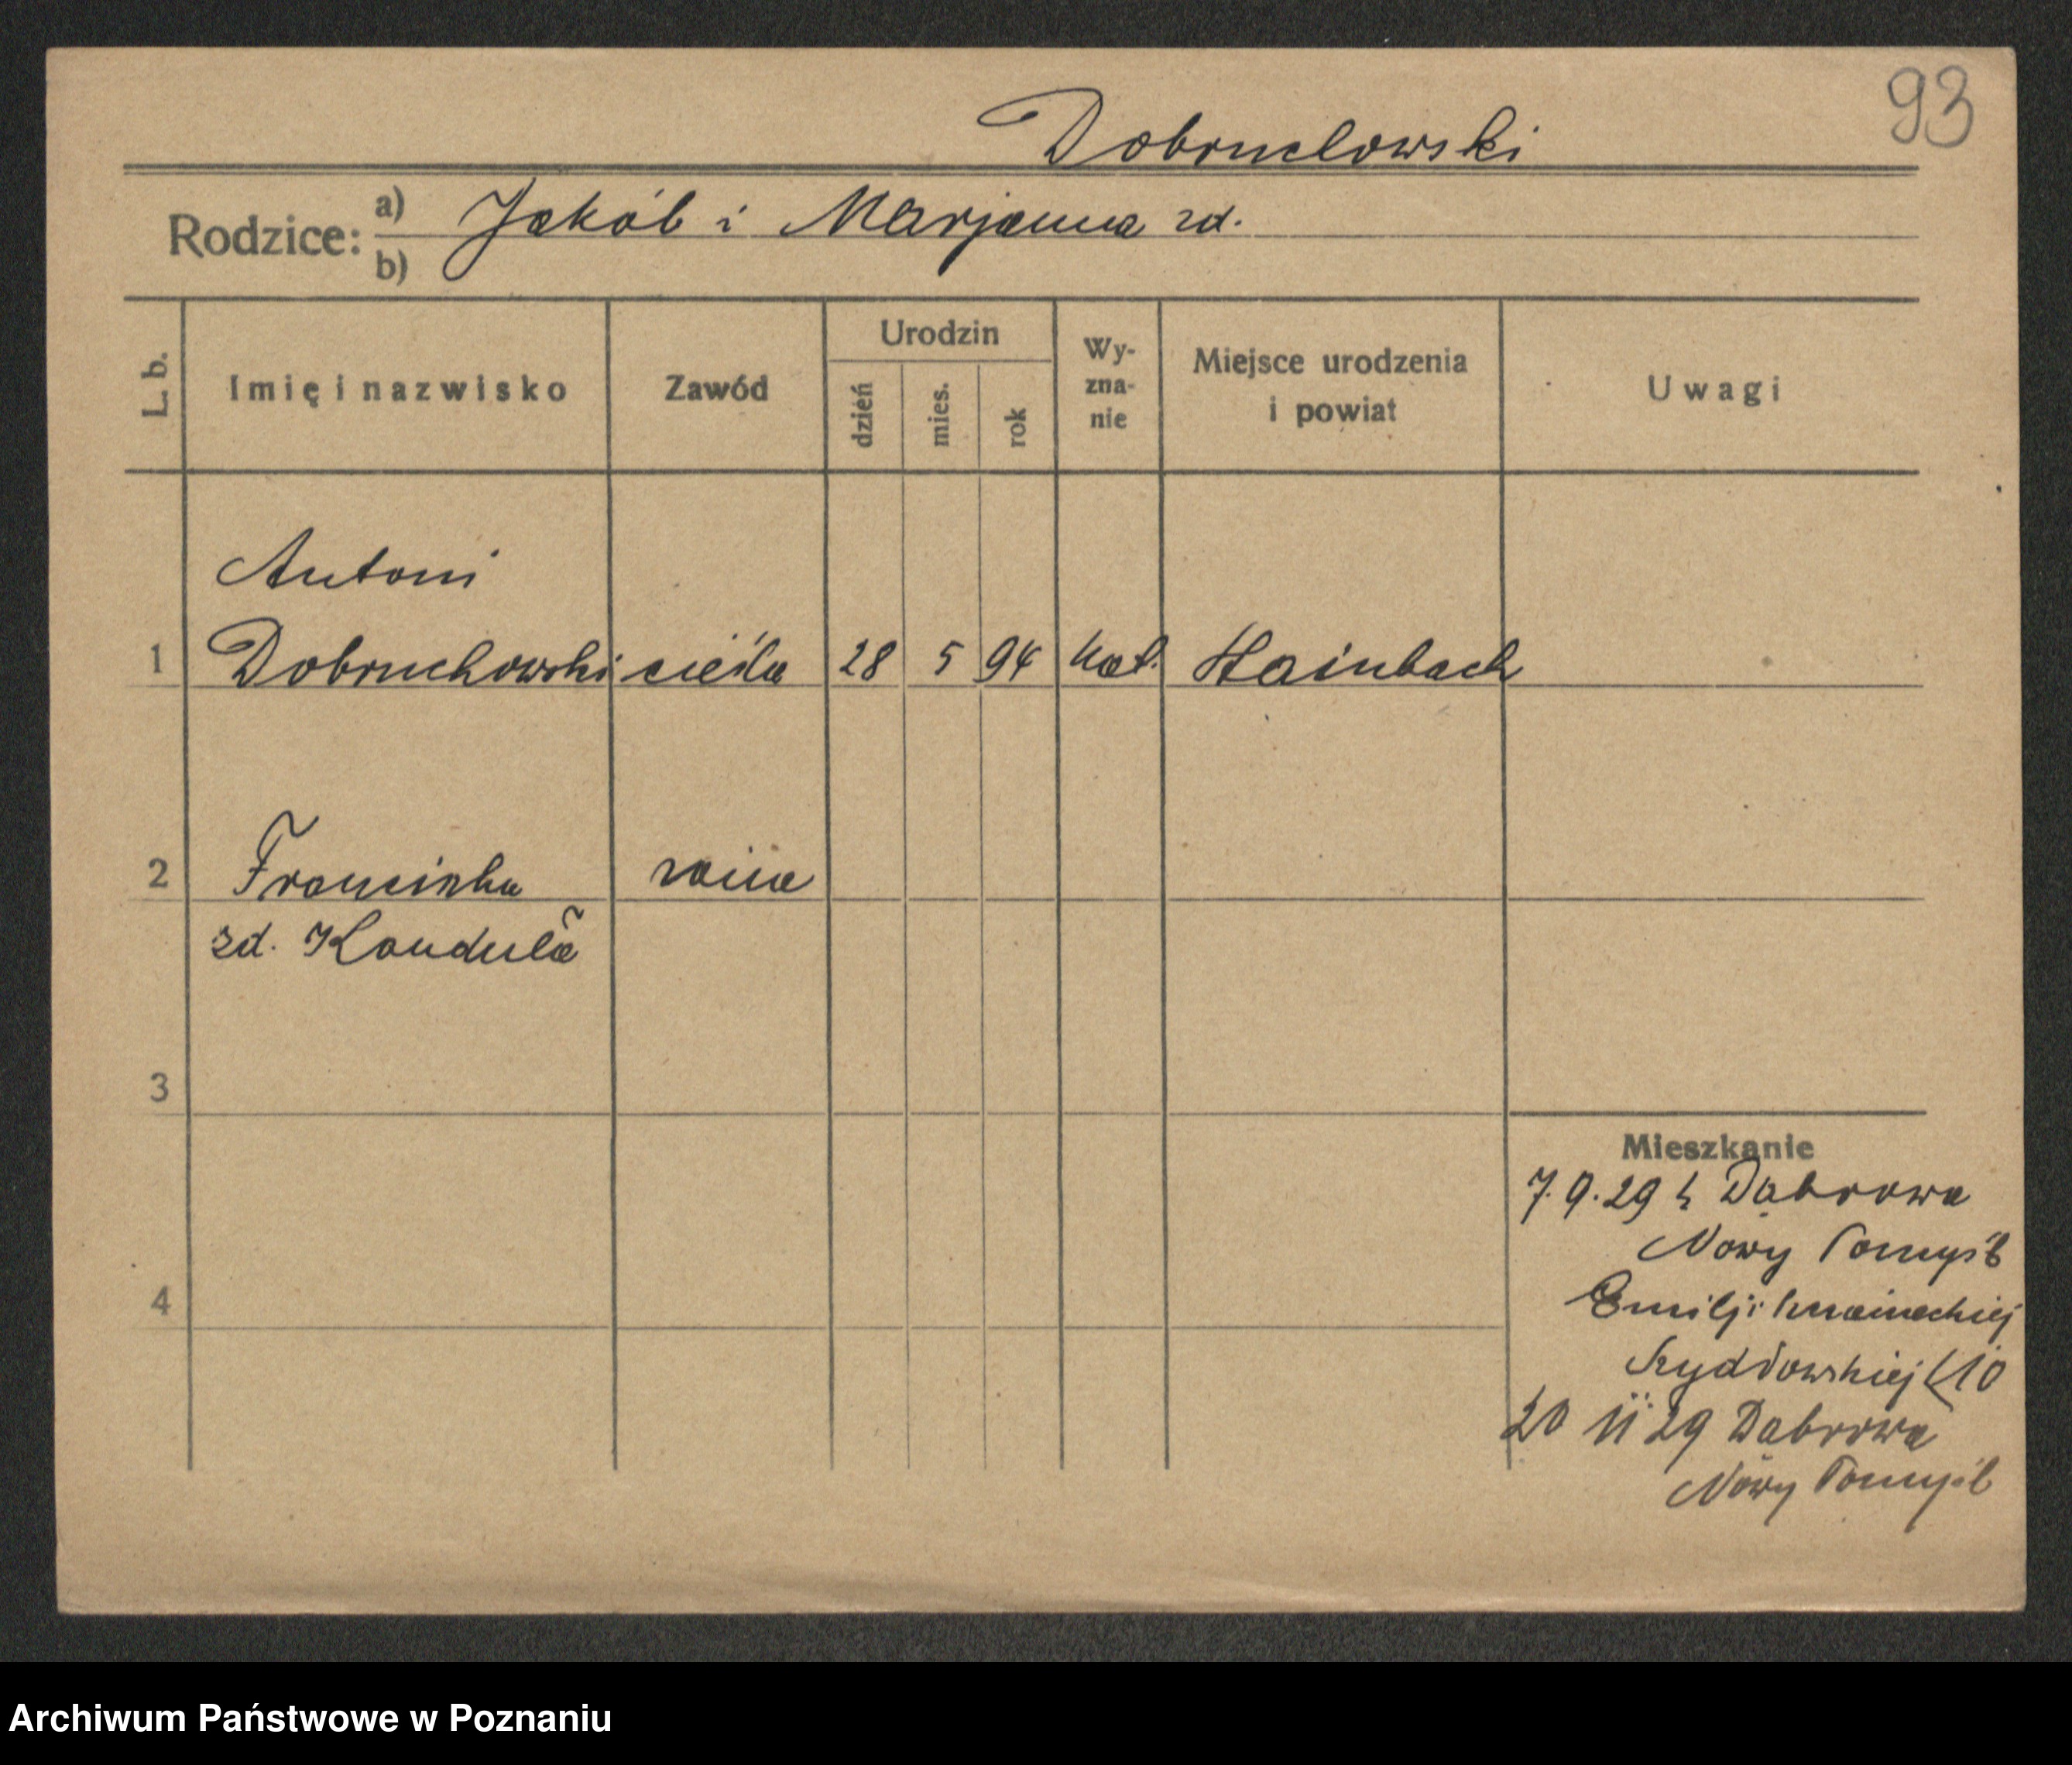 93
Dobruchowski
Rodzice: a) Jakób i Marjanna zd.
b)
L. b.
Imię i nazwisko
Zawód
Urodzin
dzień
mies.
rok
Wy-
zna-
nie
Miejsce urodzenia
i powiat
Uwagi
Antoni
1 Dobruchowski cieśla 28 5 94 kat. Hainbach
2 Franciszka
zd.
3
4
Mieszkanie
7.9.29 z Dąbrowa
Nowy Tomyśl
Emilji
Szydłowskiej 10
20 11 29 Dąbrowa
Nowy Tomyśl
Archiwum Państwowe w Poznaniu